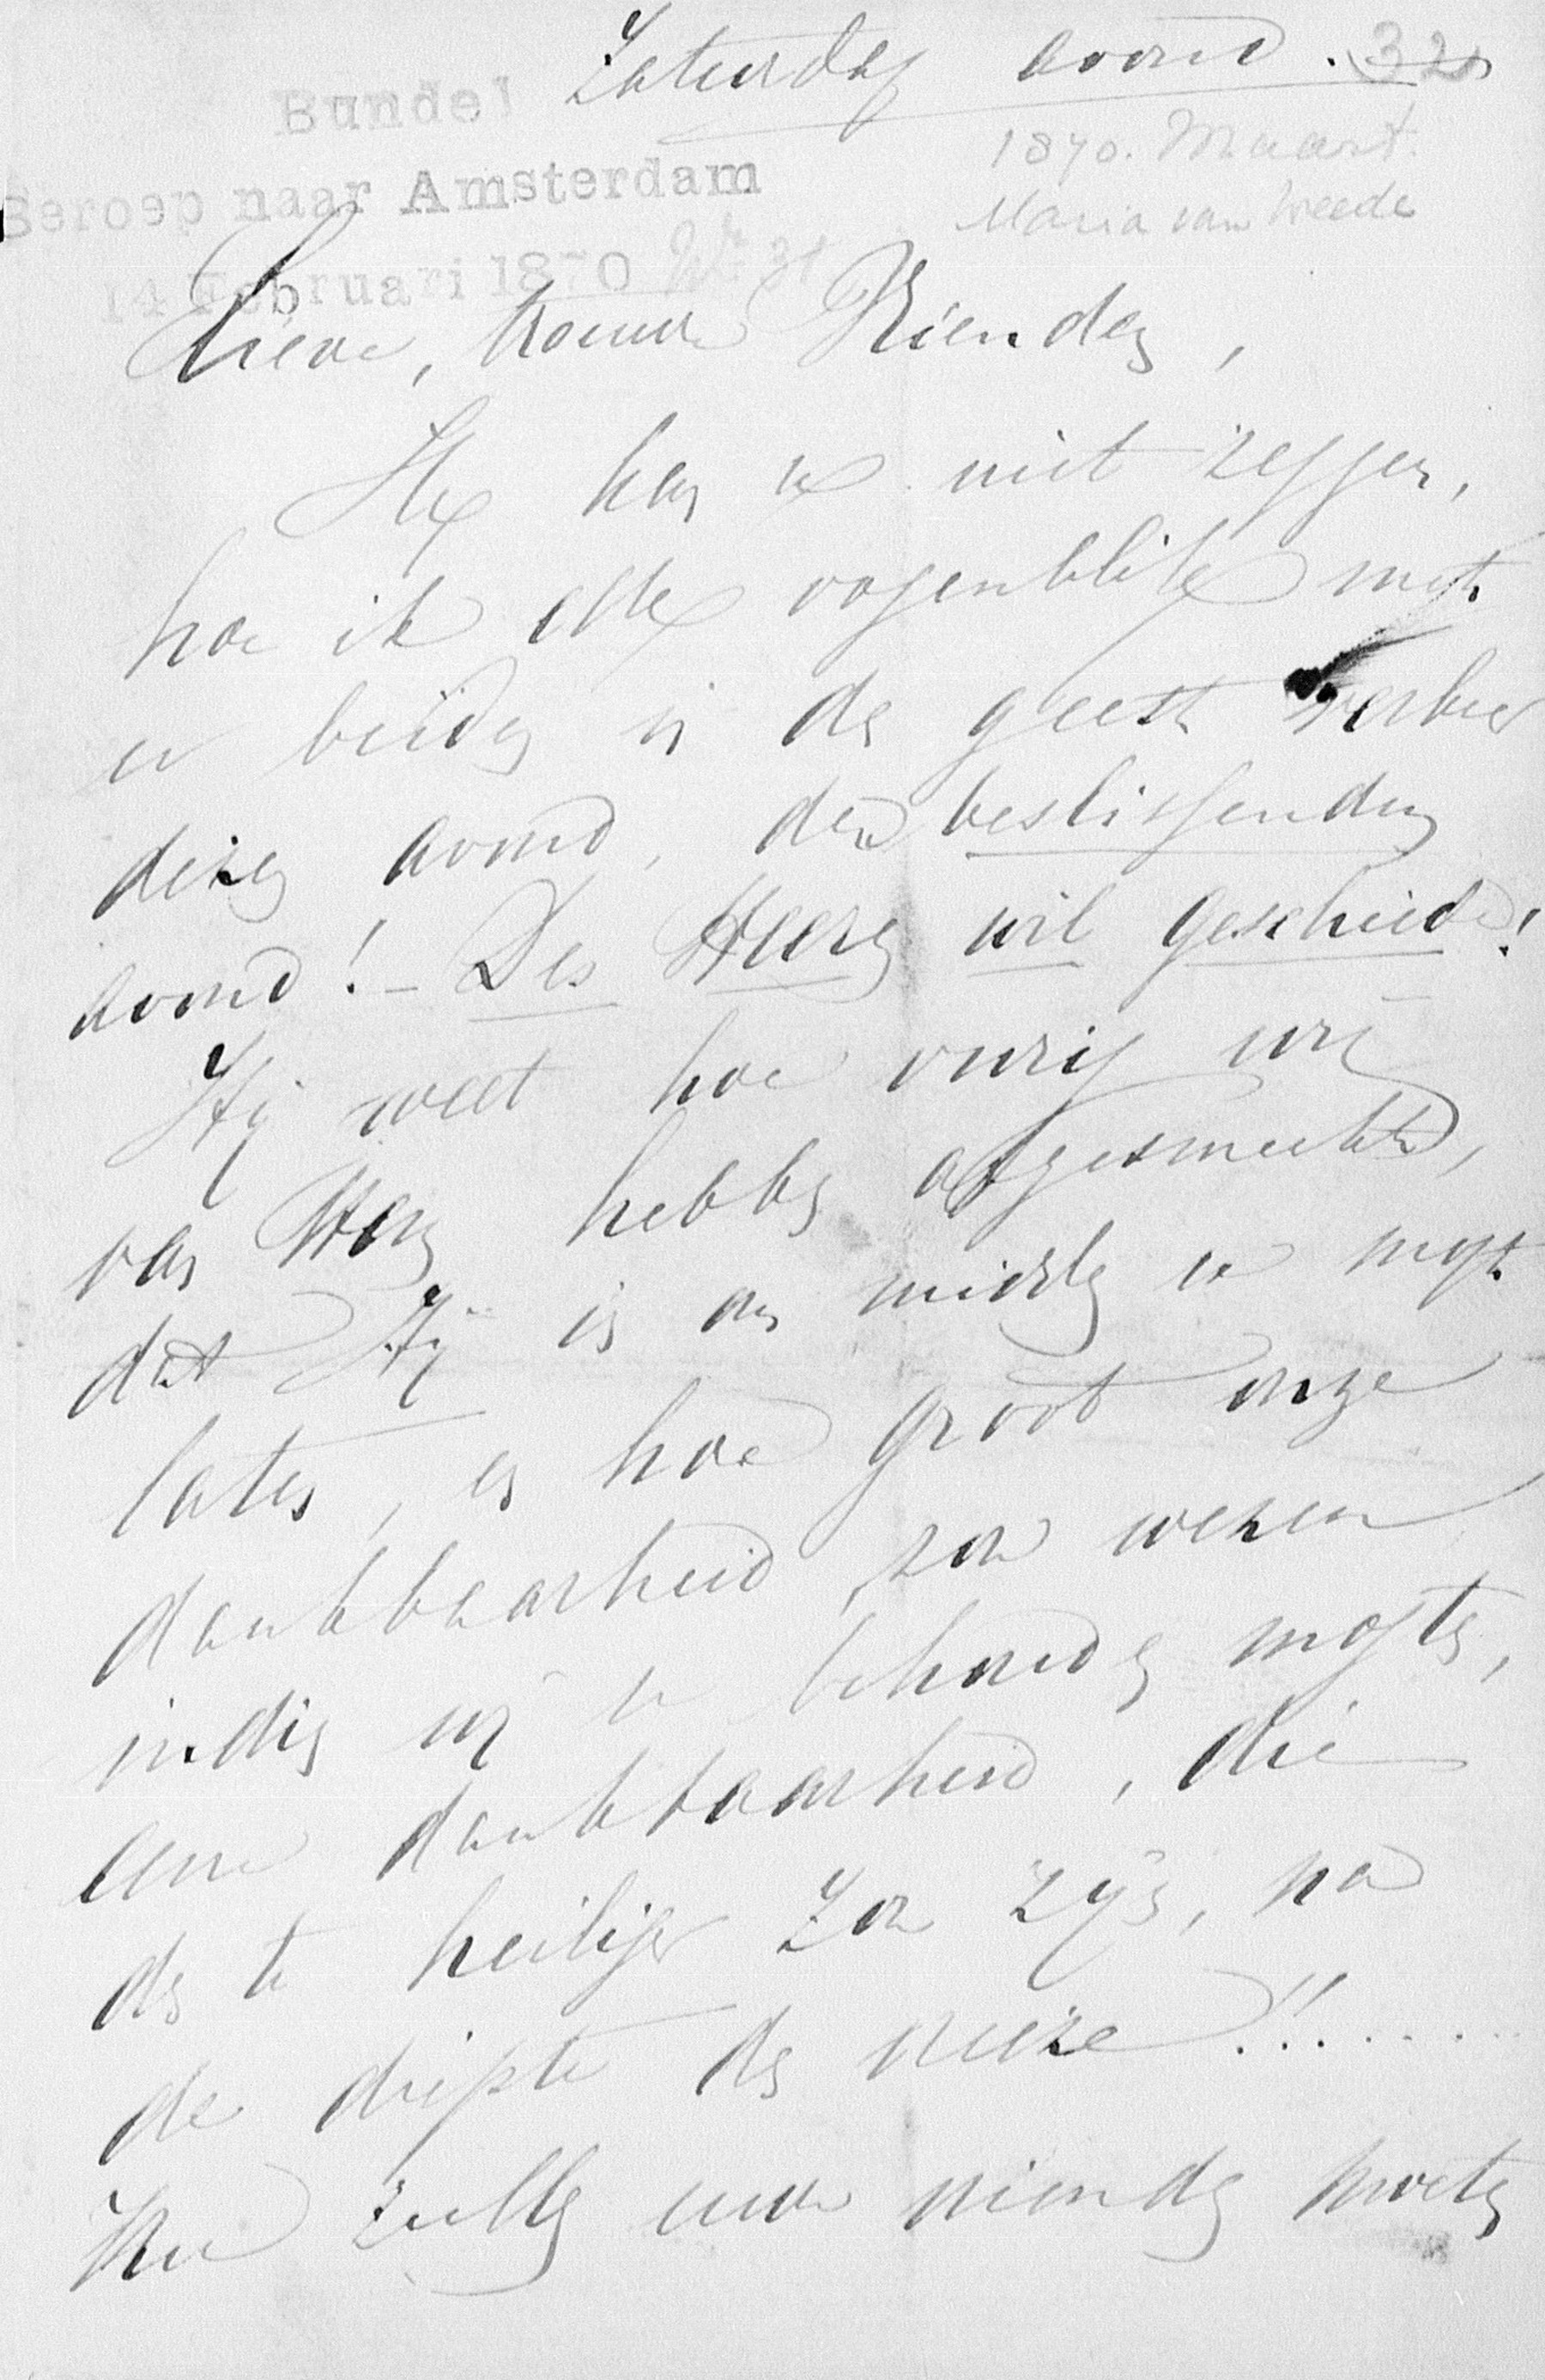 Zaturdag avond. 32
Bundel
1870. Maart.
Beroep naar Amsterdam
Maria van Weede
14 Februari 1870 No 31
Lieve, trouwe Vrienden,
Ik kan u niet zeggen,
hoe ik elk oogenblik met
u beiden in den geest verkeer
dezen avond, den beslissenden
avond! - Des Heeren wil geschiede!
Hij weet hoe vurig wij
van Hem hebben afgesmeekt,
dat Hij in ons midden u mogt
laten, en hoe groot onze
dankbaarheid zou wezen
indien wij u behouden mogten,
eene dankbaarheid, die
des te heiliger zou zijn, na
de diepte der vreeze!!......
Hoe zullen uwe vrienden moeten